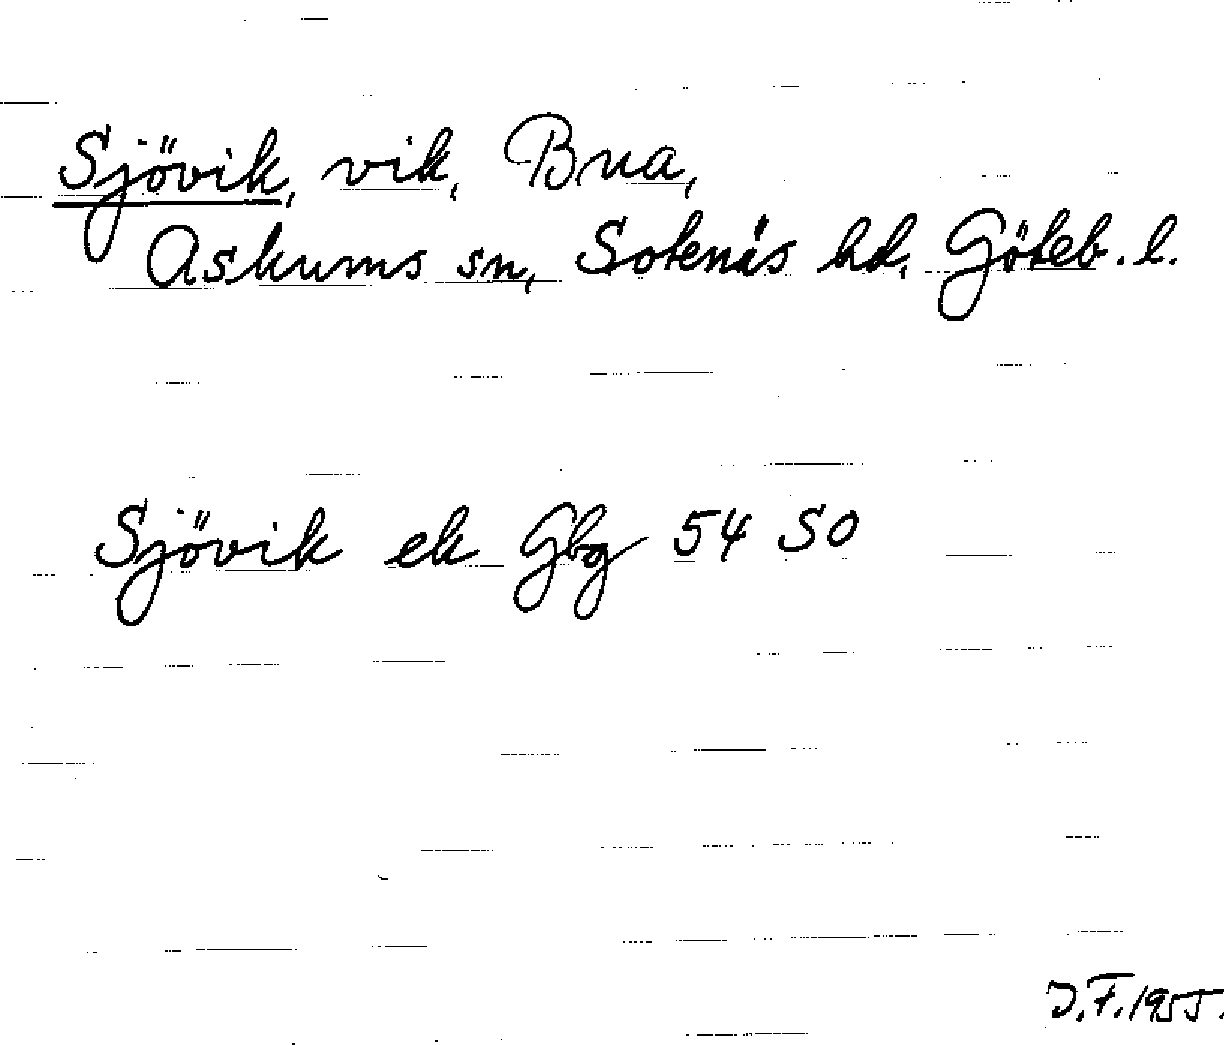 Sjövik, vik, Bua,
Askums sn, Sotenäs hd. Göteb. l.
Sjövik ek Gbg 54 SO
J.F. 1955.